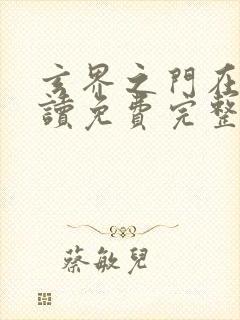 玄界之門在
讀免費完整
蔡敏兒